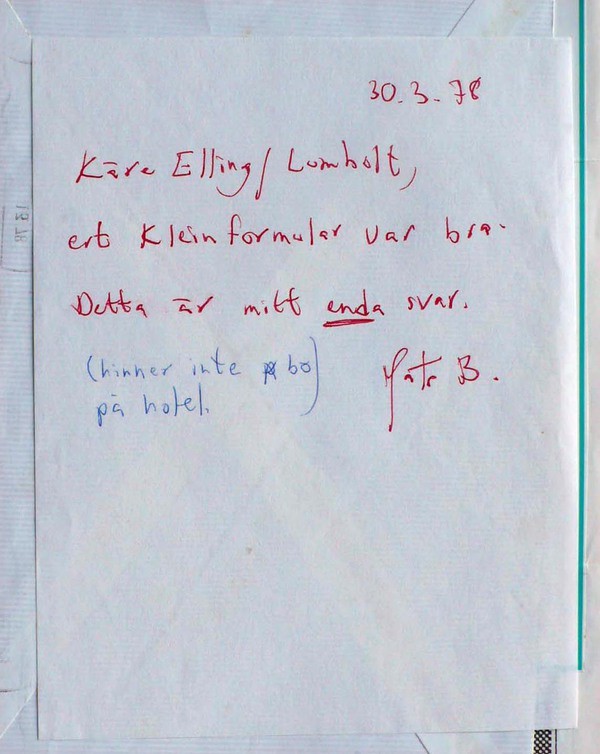 30.3.78
Käre Elling / Lomholt,
ert Kleinformular var bra.
Detta är mitt enda svar.
(hinner inte bo)
på hotel.
B.